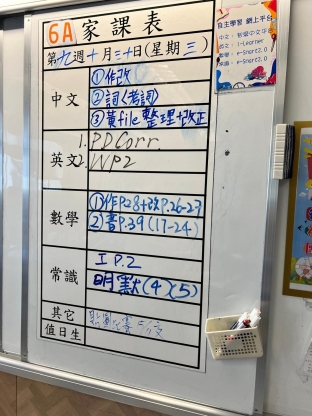 6A 家課表
第九週十月三十日(星期三)
中文
①作改
②詞〈考詞〉
③黃file整理+改正
英文
1. PD Corr.
2. WP2
數學
①作P.28+改P.26-27
②書P.39 (17-24)
常識
工 P.2
明默(4)(5)
其它
值日生
自主學習 網上平台
中文：智愛中文平台
英文：i-Learner
數學：e-Smart2.0
常識：e-Smart2.0